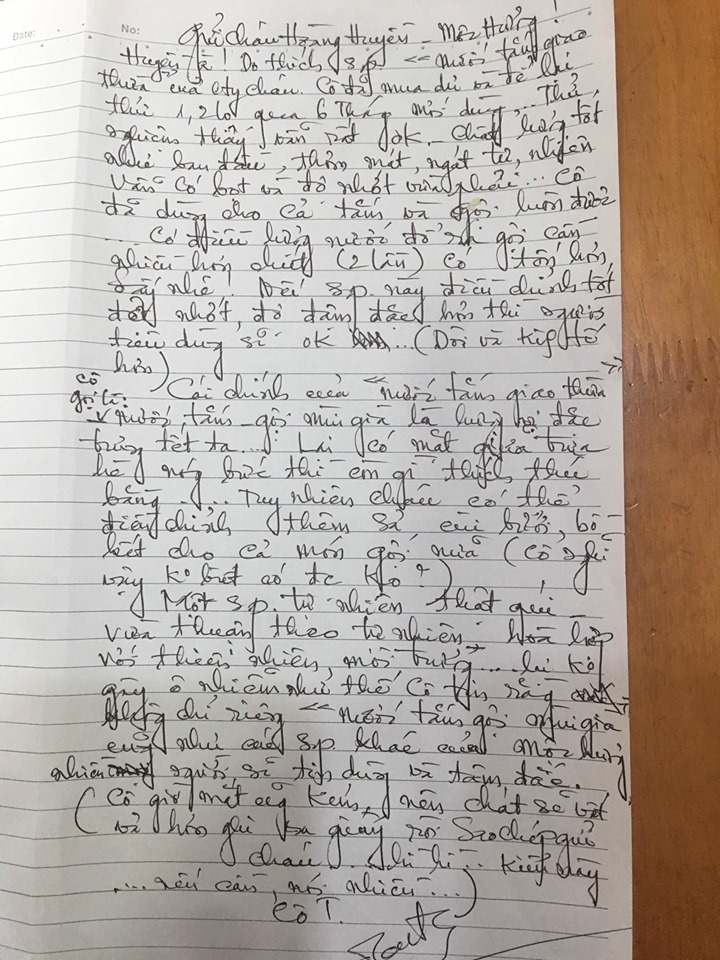 Date: No:
Gửi cháu Hoàng Huyền - Mộc Hương!
Huyền à! Do thích s.p. "nước tắm giao
thừa của cty cháu. Cô đã mua dù và để khi
thứ 1, 2 lọ qua 6 tháng mới dùng... Thử,
nghiệm thấy vẫn rất ok - chất lượng tốt
như ban đầu, thơm mát, ngát tự nhiên
Vẫn có bọt và độ nhớt vừa phải... Cô
đã dùng cho cả tắm và gội luôn được
... Có điều lượng nước đổ khi gội cần
nhiều hơn chút (2 lần) có tốn hơn,
đấy nhé! Nếu s.p. này điều chỉnh tốt
độ nhớt, độ đậm đặc hơn thì người
tiêu dùng sẽ ok ... (Dôi và tiết
hơn)
Cái chính của "nước tắm giao thừa"
Cô
gọi là:
v nước tắm - gội mùi già là hương vị đặc
trưng tết ta...! Lại có mặt giữa trưa
hè nóng bức thì em gì thích thú
bằng .... Tuy nhiên cháu có thể
điều chỉnh thêm sả cùi bưởi, bồ
kết cho cả món gội nữa (Cô nghĩ
vậy ko biết có đc ko?)
Một s.p. tự nhiên thật quí -
vừa thuận theo tự nhiên, hoà hợp
với thiên nhiên, môi trường... lại ko
gây ô nhiễm như thế Cô tin rằng
không chỉ riêng "nước tắm gội mùi già"
cũng như các s.p khác của Mộc Hương
nhiều người sẽ tin dùng và tâm đắc.
(Cô giờ mắt cũng kém, nên chát sẽ
và hơn ghi ra giấy rồi Sao chép gửi
cháu ... hi hi ... kiểu này
.... nếu cần, nói nhiều...)
Cô T.